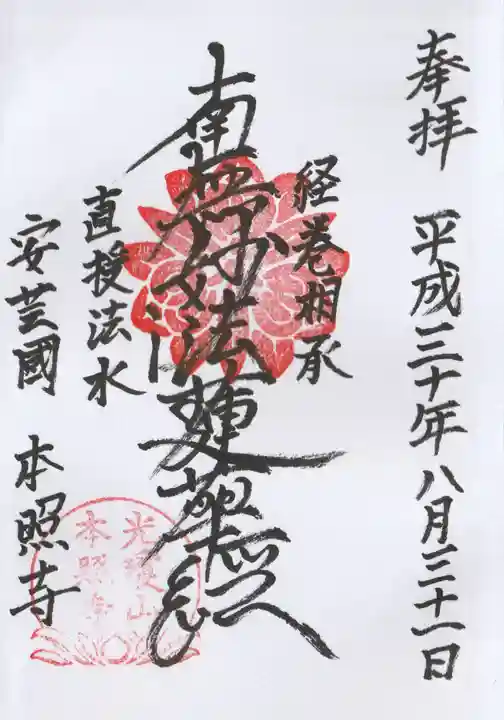 奉拝 平成三十年八月三十一日
経巻相承
南無妙法蓮華経
直授法水
安芸國 本照寺
本照寺